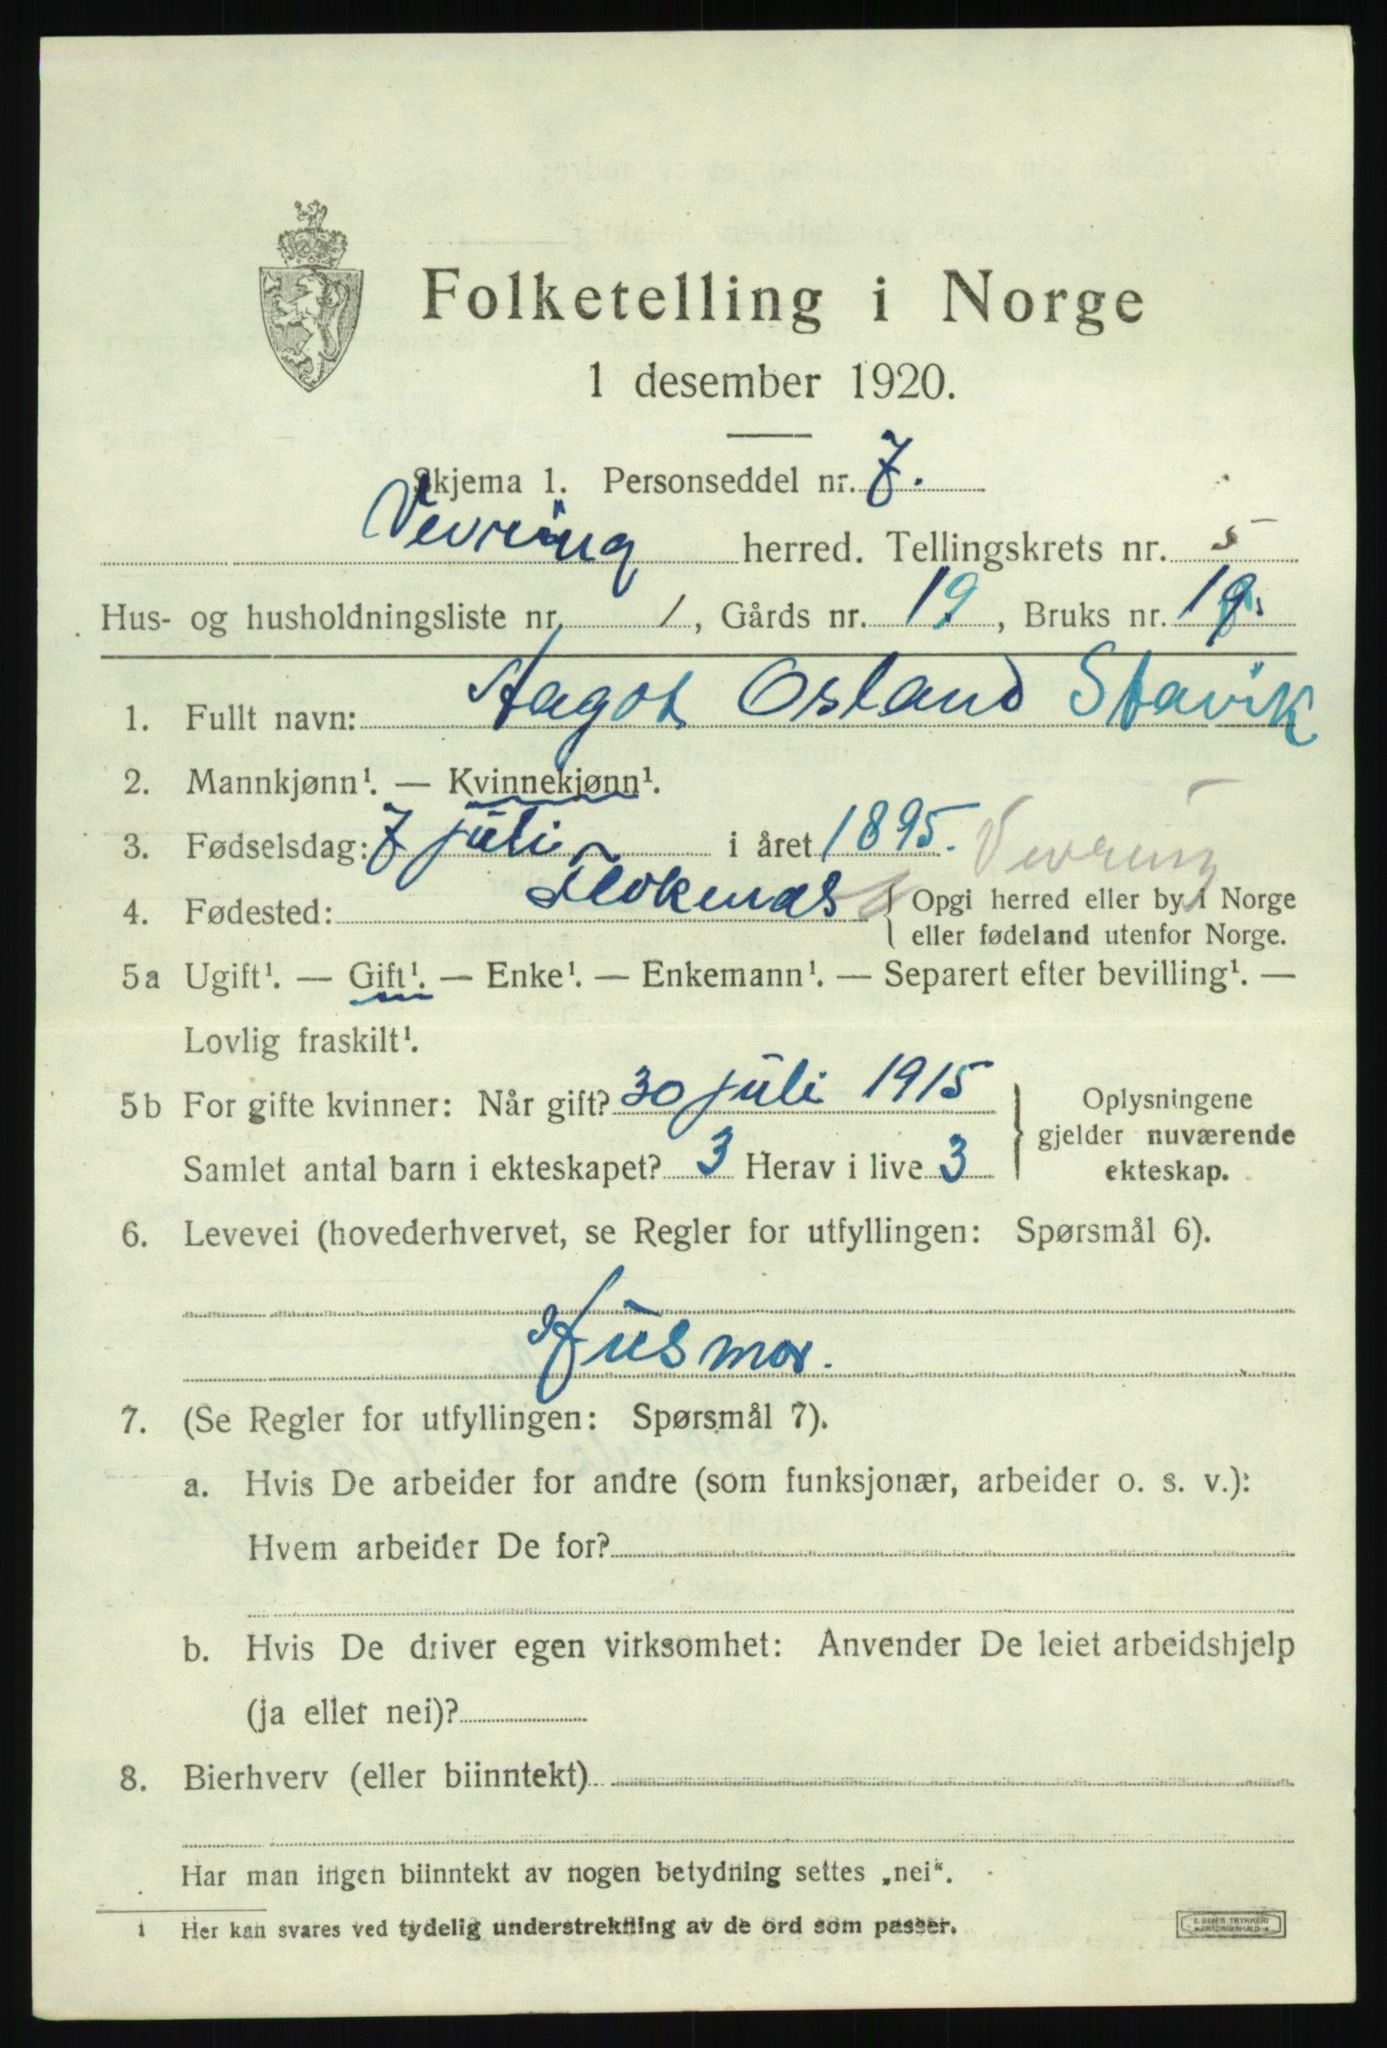 Folketelling i Norge
1 desember 1920.
Skjema 1. Personseddel nr. 7.
Vevring herred. Tellingskrets nr. 5
Hus- og husholdningsliste nr. 1, Gårds nr. 19, Bruks nr.
1. Fullt navn: Aagot Osland Stavik
2. Mannkjønn¹. — Kvinnekjønn¹.
3. Fødselsdag: 7 juli i året 1895. Vevring
4. Fødested: Flokenæs { Opgi herred eller by i Norge
eller fødeland utenfor Norge.
5a Ugift¹. — Gift¹. — Enke¹. — Enkemann¹. — Separert efter bevilling¹. —
Lovlig fraskilt¹.
5b For gifte kvinner: Når gift? 30 juli 1915
Samlet antal barn i ekteskapet? 3 Herav i live 3
} Oplysningene
gjelder nuværende
ekteskap.
6. Levevei (hovederhvervet, se Regler for utfyllingen: Spørsmål 6).
Husmor.
7. (Se Regler for utfyllingen: Spørsmål 7).
a. Hvis De arbeider for andre (som funksjonær, arbeider o. s. v.):
Hvem arbeider De for?
b. Hvis De driver egen virksomhet: Anvender De leiet arbeidshjelp
(ja eller nei)?
8. Bierhverv (eller biinntekt)
Har man ingen biinntekt av nogen betydning settes „nei“.
1 Her kan svares ved tydelig understrekning av de ord som passer.